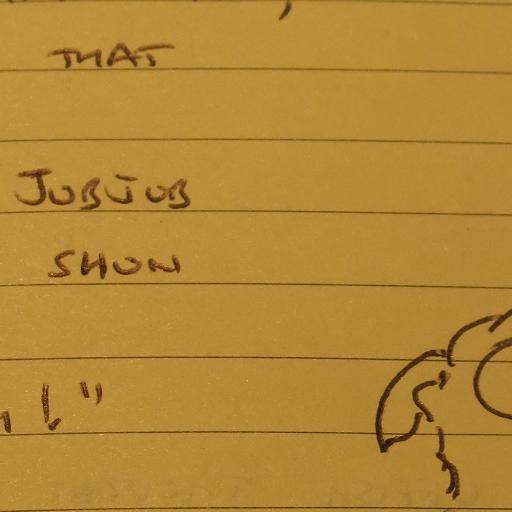 THAT
JUBJUB
SHUN
!"